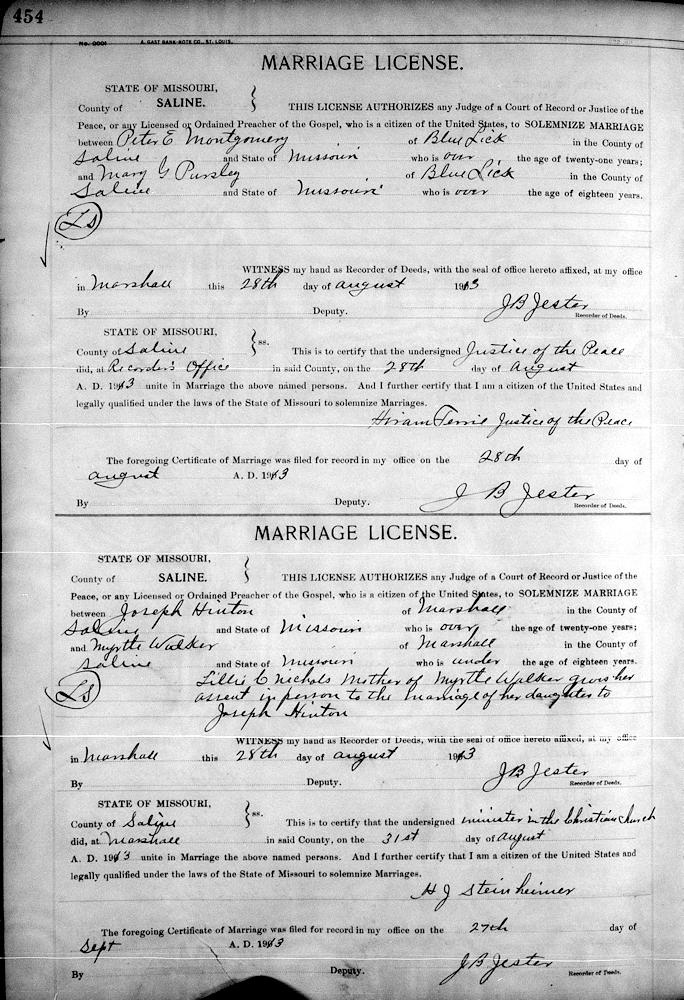 454
No. 0001 A. GAST BANK NOTE CO., ST. LOUIS.
MARRIAGE LICENSE.
STATE OF MISSOURI,
County of SALINE. THIS LICENSE AUTHORIZES any Judge of a Court of Record or Justice of the
Peace, or any Licensed or Ordained Preacher of the Gospel, who is a citizen of the United States, to SOLEMNIZE MARRIAGE
between Peter E Montgomery of Blue Lick in the County of
Saline and State of Missouri who is over the age of twenty-one years;
and Mary G Pursley of Blue Lick in the County of
Saline and State of Missouri who is over the age of eighteen years.
LS
WITNESS my hand as Recorder of Deeds, with the seal of office hereto affixed, at my office
in Marshall this 28th day of August 1913
J B Jester
By Deputy. Recorder of Deeds.
STATE OF MISSOURI,
County of Saline ss. This is to certify that the undersigned Justice of the Peace
did, at Recorder's Office in said County, on the 28th day of August
A. D. 1913 unite in Marriage the above named persons. And I further certify that I am a citizen of the United States and
legally qualified under the laws of the State of Missouri to solemnize Marriages.
Hiram Justice of the Peace
The foregoing Certificate of Marriage was filed for record in my office on the 28th day of
August A. D. 1913
By Deputy. J B Jester
Recorder of Deeds.
MARRIAGE LICENSE.
STATE OF MISSOURI,
County of SALINE. THIS LICENSE AUTHORIZES any Judge of a Court of Record or Justice of the
Peace, or any Licensed or Ordained Preacher of the Gospel, who is a citizen of the United States, to SOLEMNIZE MARRIAGE
between Joseph Hinton of Marshall in the County of
Saline and State of Missouri who is over the age of twenty-one years;
and Myrtle Walker of Marshall in the County of
Saline and State of Missouri who is under the age of eighteen years.
Lillie C Nichols Mother of Myrtle Walker gives her
assent in person to the marriage of her daughter to
Joseph Hinton
LS
WITNESS my hand as Recorder of Deeds, with the seal of office hereto affixed, at my office
in Marshall this 28th day of August 1913
J B Jester
By Deputy. Recorder of Deeds.
STATE OF MISSOURI,
County of Saline ss. This is to certify that the undersigned minister in the Christian Church
did, at Marshall in said County, on the 31st day of August
A. D. 1913 unite in Marriage the above named persons. And I further certify that I am a citizen of the United States and
legally qualified under the laws of the State of Missouri to solemnize Marriages.
H J Steinheimer
The foregoing Certificate of Marriage was filed for record in my office on the 27th day of
Sept A. D. 1913
By Deputy. J B Jester Recorder of Deeds.